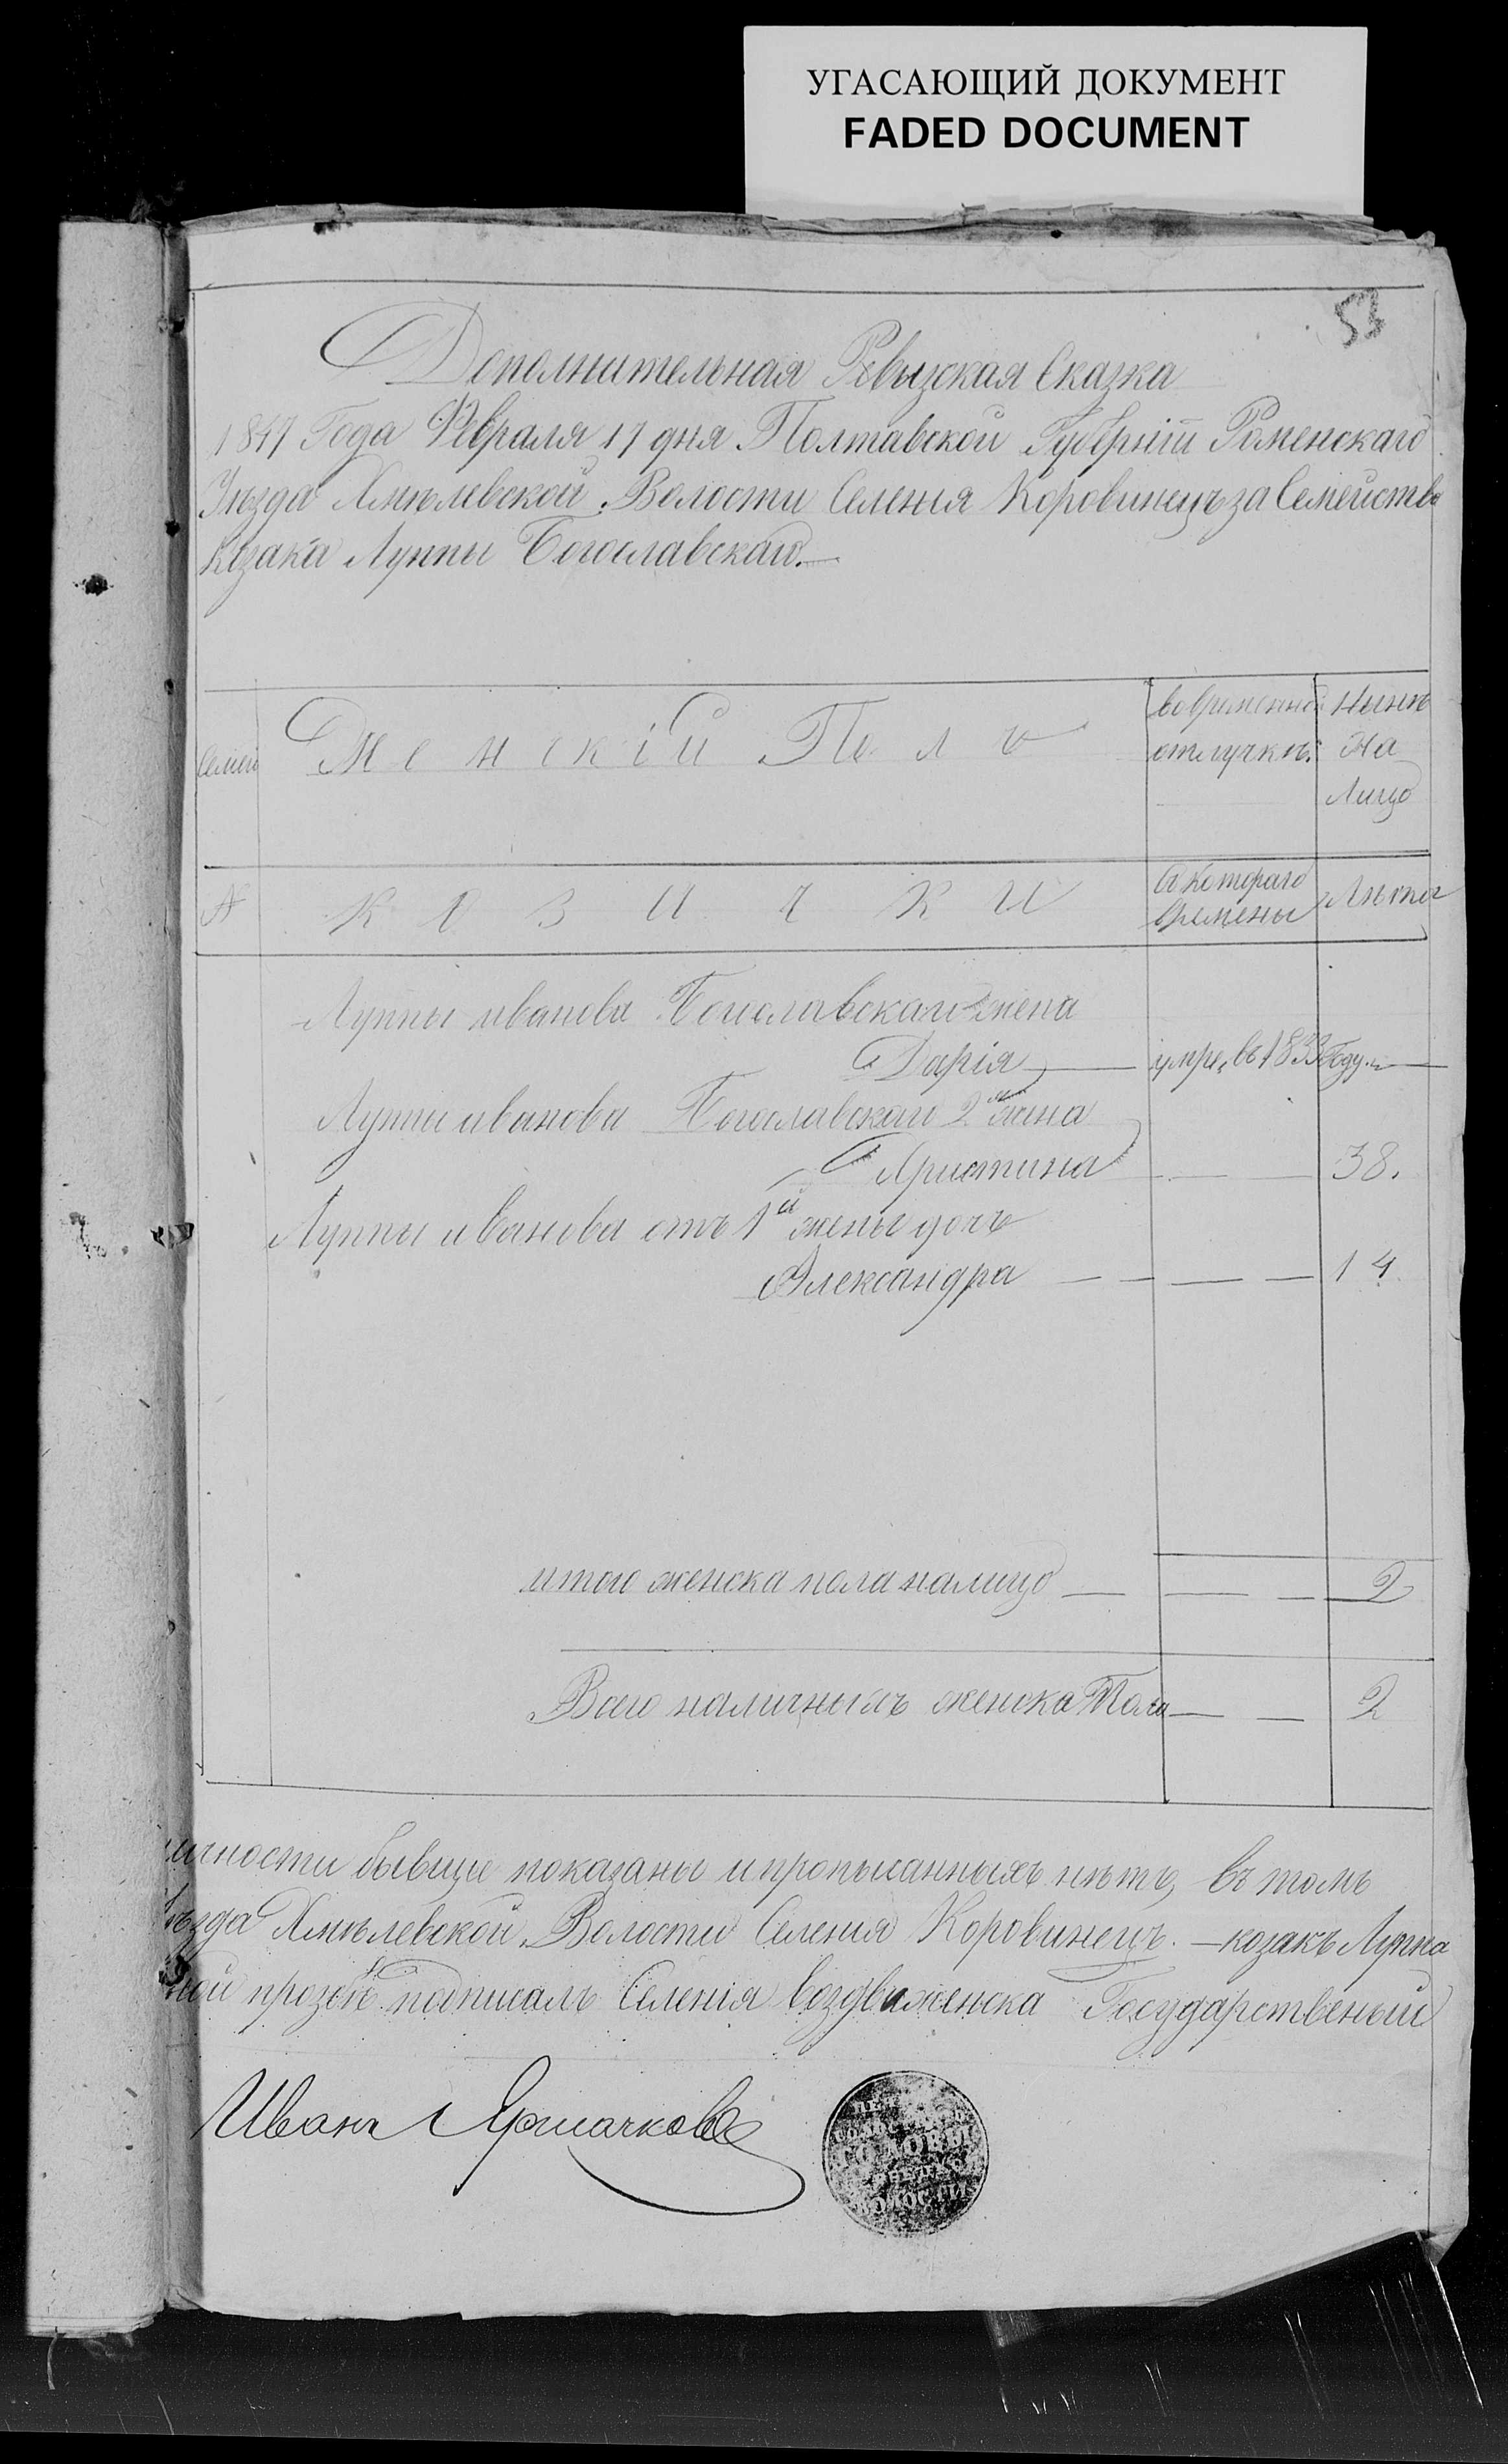 УГАСАЮЩИЙ ДОКУМЕНТ
FADED DOCUMENT
53
Дополнительная Ревызская Сказка
1847 Года Февраля 17 дня Полтавской Губерніи Роменскаго
Уѣзда Хмѣлевской Волости Селенія Коровинецъ за Семейство
Козака Луппы Богославскаго.
Семей
Женскій Полъ
Во временной отлучкѣ.
Нынѣ на Лицо
№
К О З И Ч К И
Съ котораго времены
Лѣта
Луппы иванова Богославскаго жена
Дарія — умре, въ 1833 Году.
Луппы иванова Богославскаго 2я жена
Христина — 38.
Луппы иванова отъ 1й жены дочь
Александра — — — — 14
итого женска пола налицо — — — 2
Всего наличныхъ женска Пола — — 2
личности бывще показаны и прописанныхъ нѣтъ, въ томъ
ѣзда Хмѣлевской Волости Селенія Коровинецъ. — козакъ Луппа
ной прозбѣ подписалъ Селенія Воздвиженска Государственый
Иванъ
ГОЛОВЫ
ВОЛОСТИ